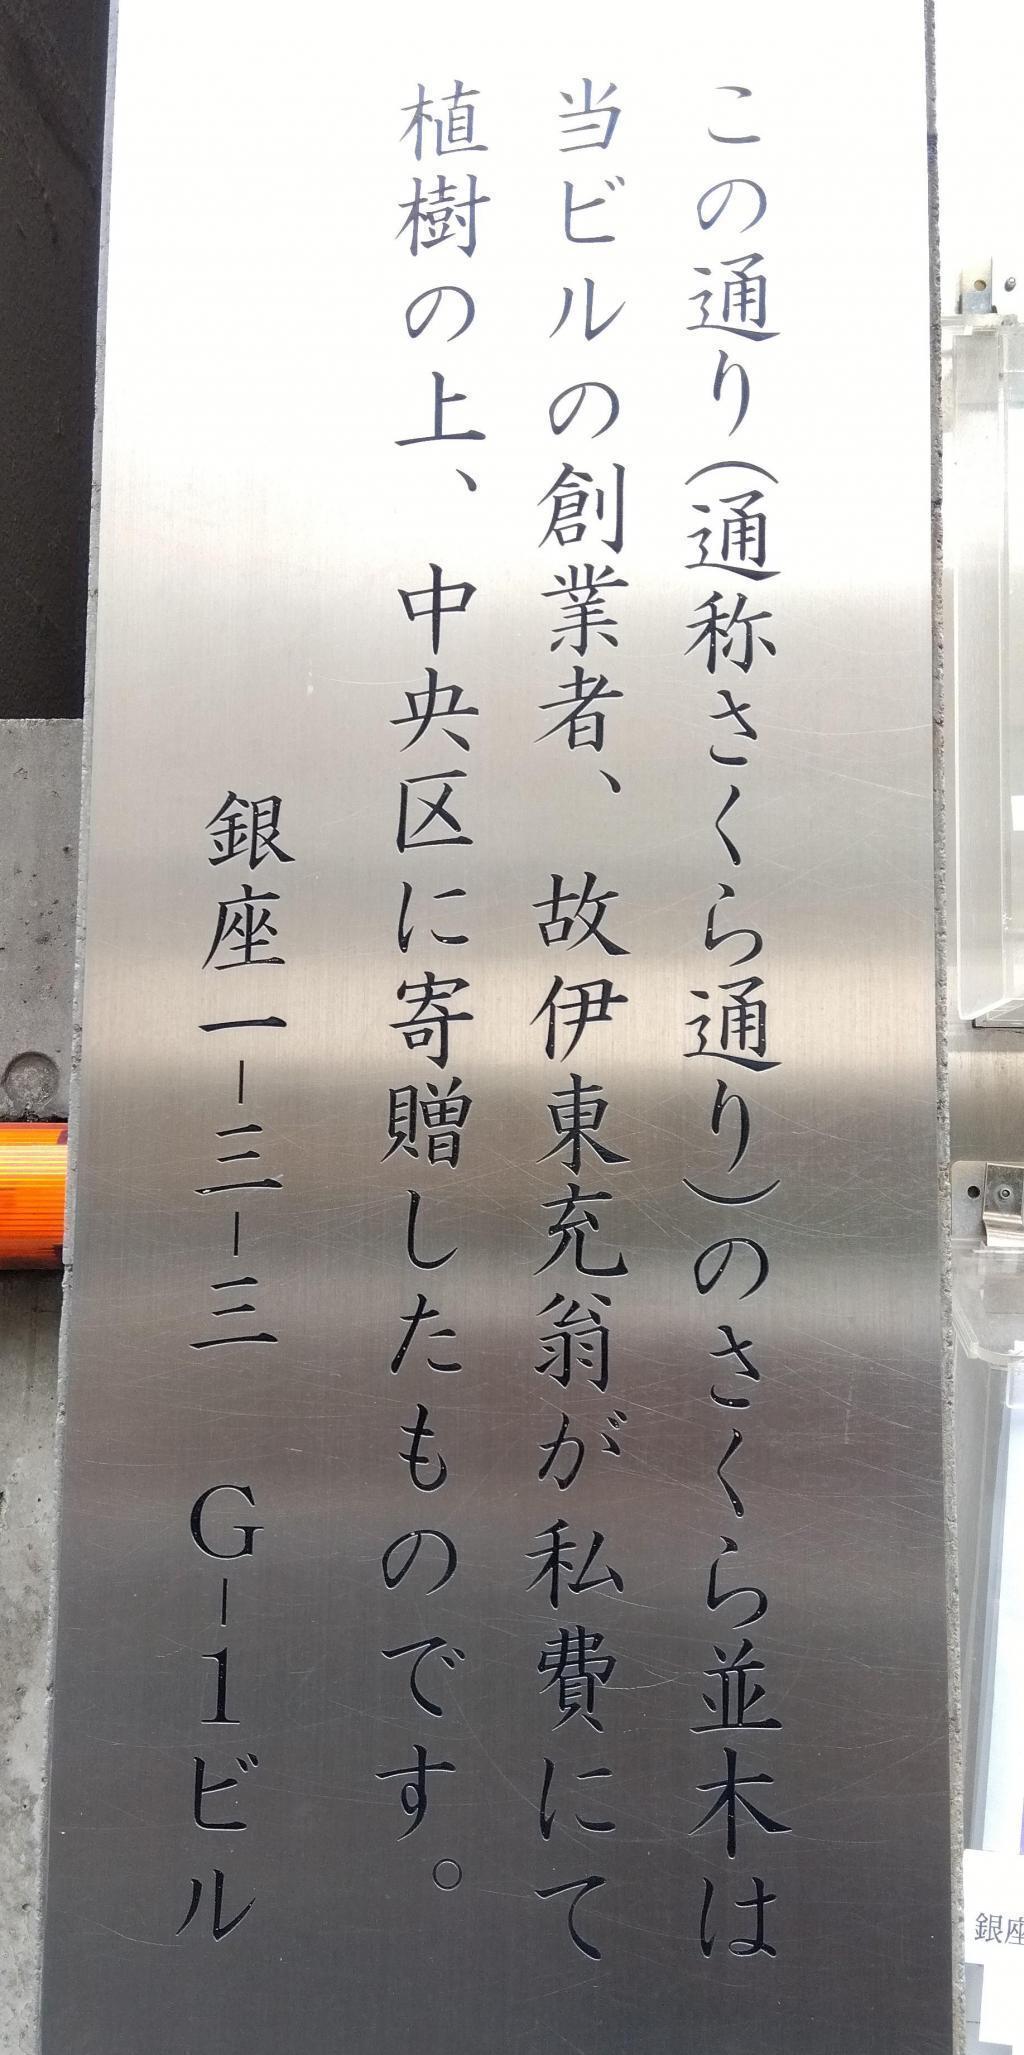 この通り(通称さくら通り)のさくら並木は
当ビルの創業者、故伊東充翁が私費にて
植樹の上、中央区に寄贈したものです。
銀座一-三-三 G-1ビル
銀座